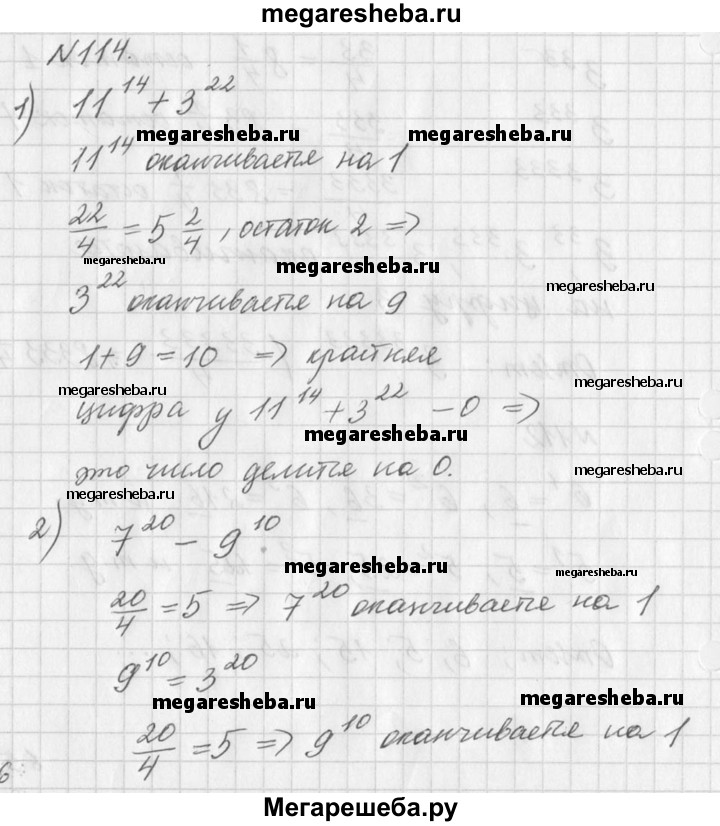 megaresheba.ru
N114.
1) 11^14 + 3^22
megaresheba.ru megaresheba.ru
11^14 оканчивается на 1
22/4 = 5 2/4, остаток 2 =>
megaresheba.ru megaresheba.ru
3^22 оканчивается на 9
1 + 9 = 10 => крайняя
megaresheba.ru megaresheba.ru
цифра у 11^14 + 3^22 - 0 =>
megaresheba.ru
это число делится на 0.
megaresheba.ru
2) 7^20 - 9^10
megaresheba.ru megaresheba.ru
20/4 = 5 => 7^20 оканчивается на 1
9^10 = 3^20
megaresheba.ru megaresheba.ru
20/4 = 5 => 9^10 оканчивается на 1
Мегарешеба.ру